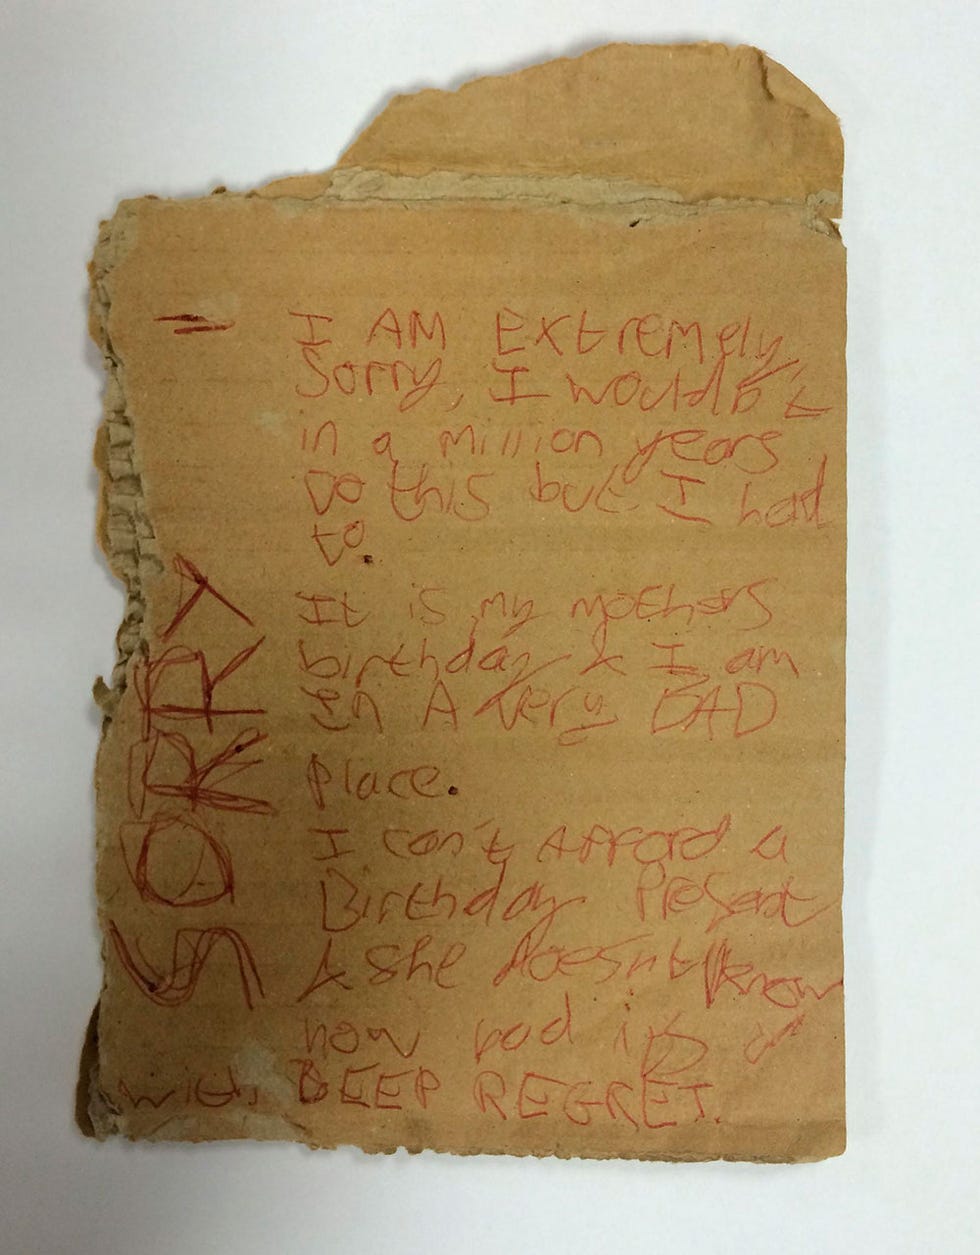 I AM Extremely
Sorry, I would
in a million years
Do this but I had
to.
It is my mothers
birthday & I am
in A very BAD
place.
I can't Afford a
Birthday Present
& she doesn't know
how bad its
with DEEP REGRET.
SORRY